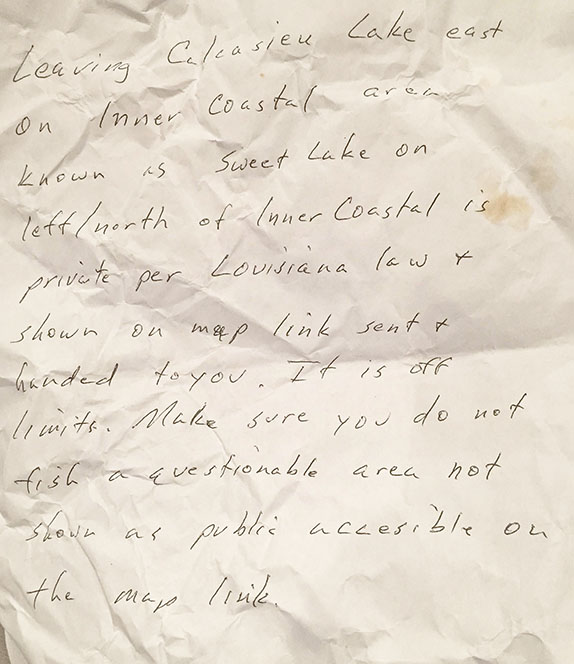 Leaving Calcasieu Lake east
on Inner Coastal area
known as Sweet Lake on
left/north of Inner Coastal is
private per Louisiana law +
shown on map link sent +
handed to you. It is off
limits. Make sure you do not
fish a questionable area not
shown as public accesible on
the map link.